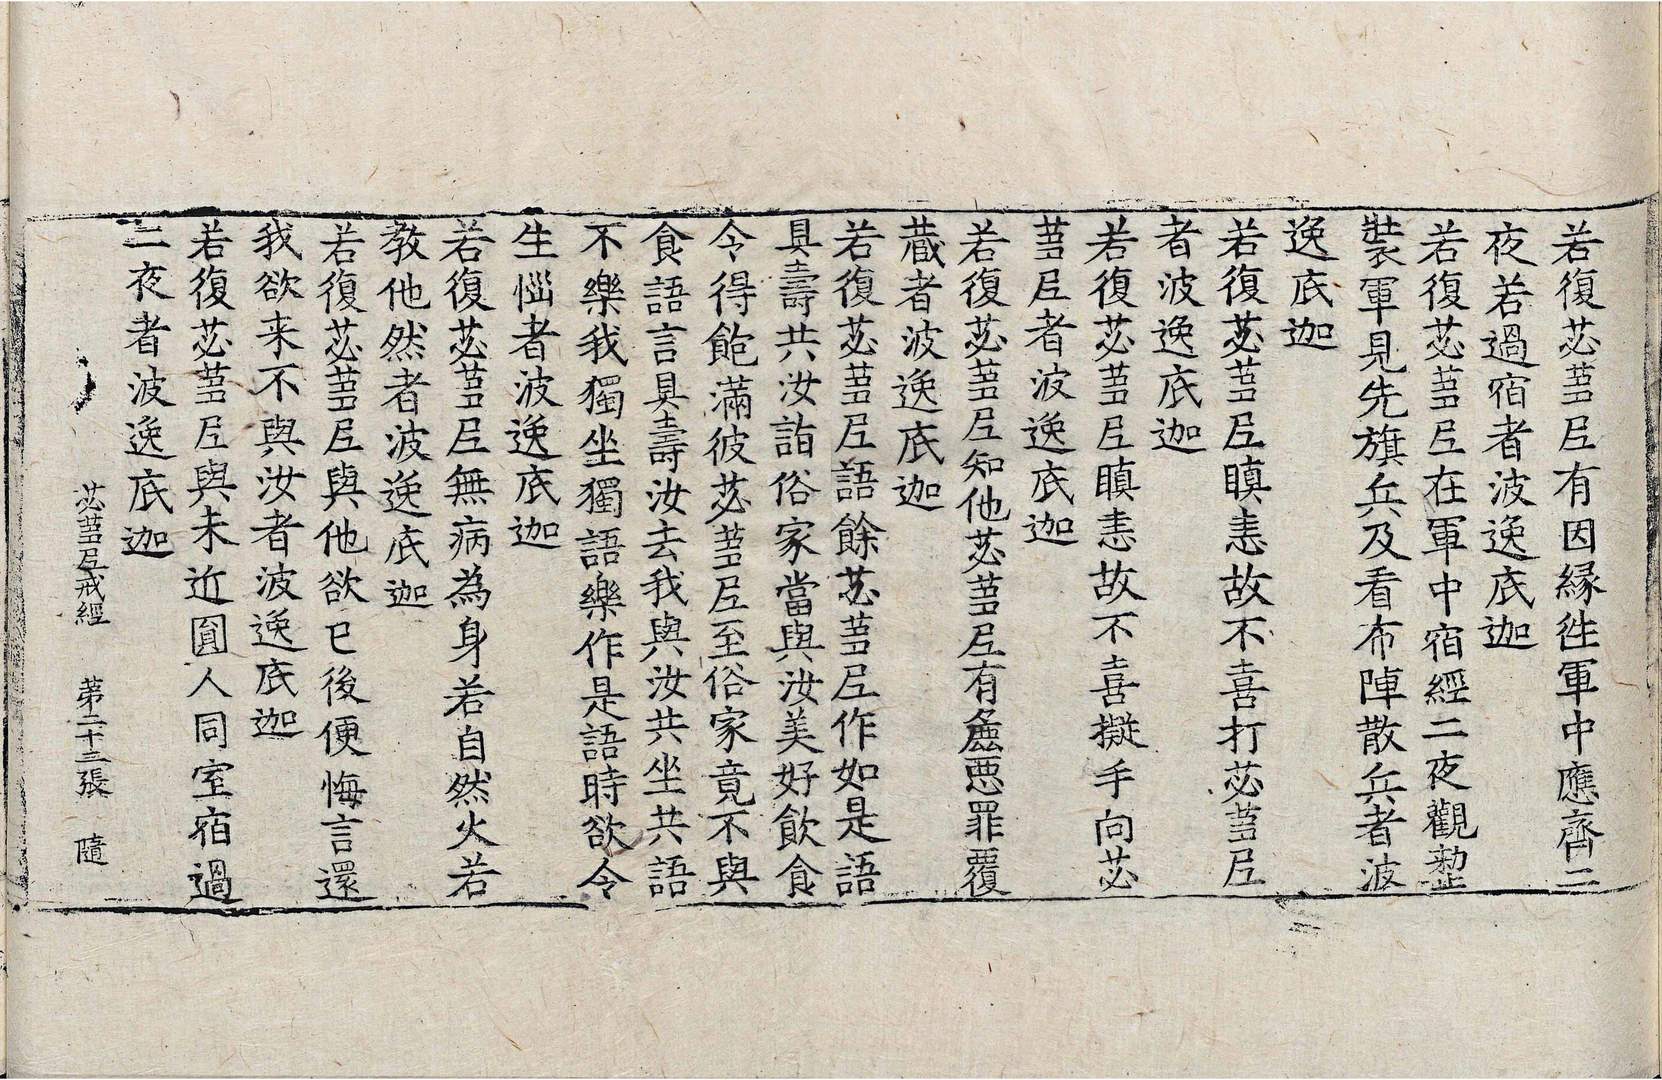 若復苾蒭尼有因緣徃軍中應齊二
夜若過宿者波逸底迦
若復苾蒭尼在軍中宿經二夜觀整
裝軍見先旗兵及看布陣散兵者波
逸底迦
若復苾蒭尼瞋恚故不喜打苾蒭尼
者波逸底迦
若復苾蒭尼瞋恚故不喜擬手向苾
蒭尼者波逸底迦
若復苾蒭尼知他苾蒭尼有麁惡罪覆
藏者波逸底迦
若復苾蒭尼語餘苾蒭尼作如是語
具壽共汝詣俗家當與汝美好飲食
令得飽滿彼苾蒭尼至俗家竟不與
食語言具壽汝去我與汝共坐共語
不樂我獨坐獨語樂作是語時欲令
生惱者波逸底迦
若復苾蒭尼無病為身若自然火若
教他然者波逸底迦
若復苾蒭尼與他欲已後便悔言還
我欲来不與汝者波逸底迦
若復苾蒭尼與未近圓人同室宿過
二夜者波逸底迦
苾蒭尼戒經　第二十三張　隨